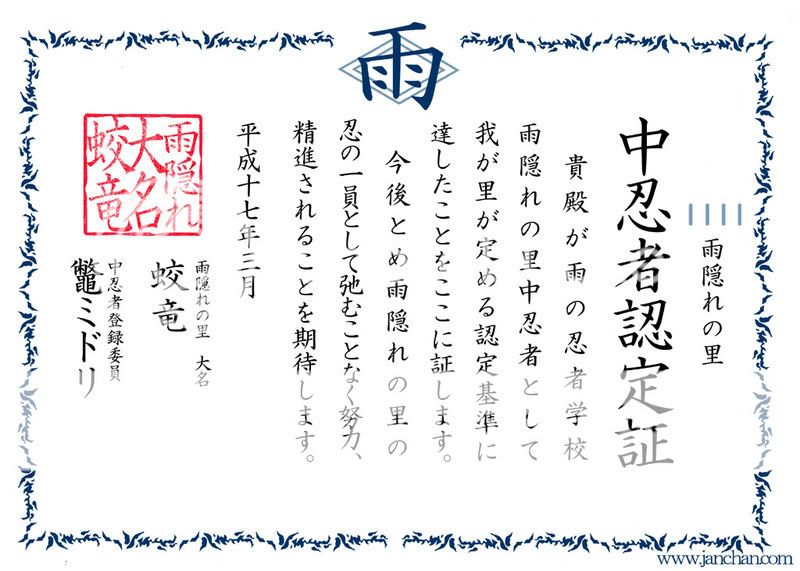 雨
雨隠れの里
中忍者認定証
貴殿が雨の忍者学校
雨隠れの里中忍者として
我が里が定める認定基準に
達したことをここに証します。
今後とめ雨隠れの里の
忍の一員として弛むことなく努力、
精進されることを期待します。
平成十七年三月
雨隠れの里 大名
蛟竜
中忍者登録委員
鼈ミドリ
雨隠れ
大名
蛟竜
www.janchan.com